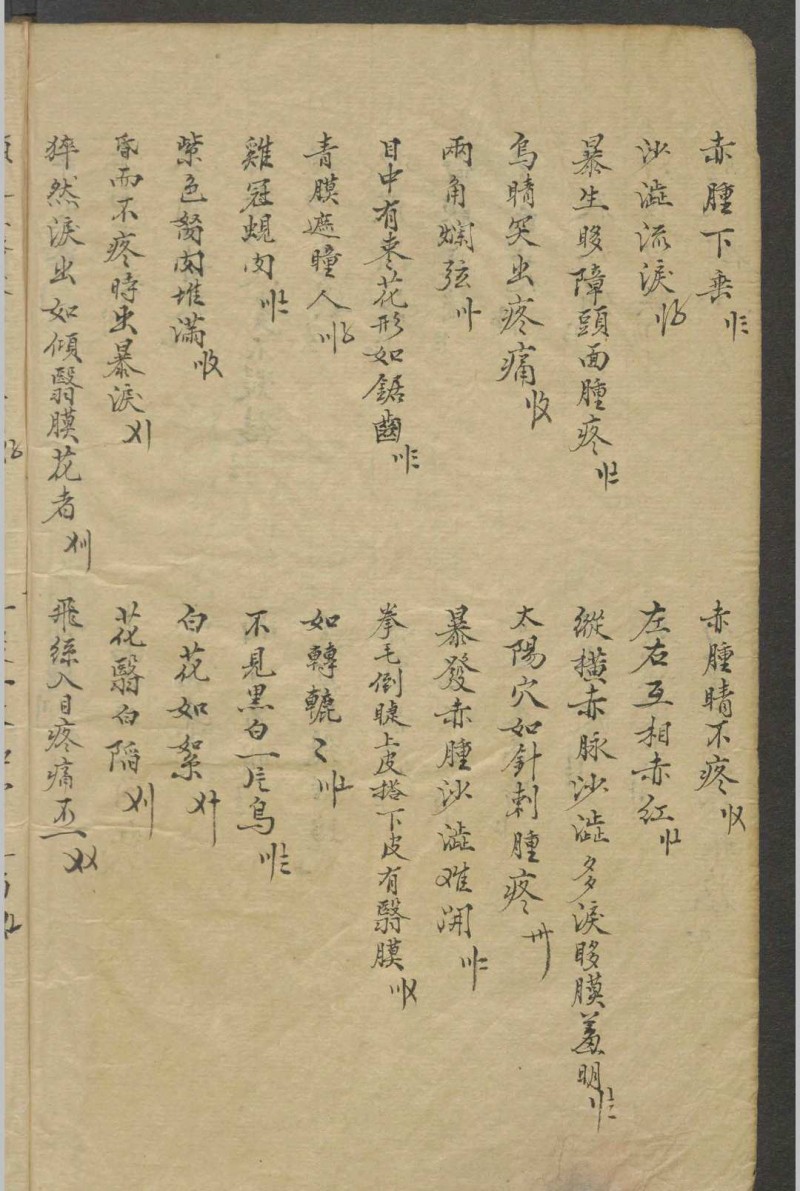 赤腫下垂
赤腫睛不疼
沙澁流淚
左右互相赤紅
暴生眵障頭面腫疼
縱橫赤脉沙澁多淚眵膜羞明
烏睛突出疼痛
太陽穴如針刺腫疼
兩角爛弦
暴發赤腫沙澁难開
目中有棗花形如鋸齒
拳毛倒睫上皮搭下皮有翳膜
青膜遮瞳人
如轉轆〻
雞冠蜆肉
不見黑白一片烏
紫色胬肉堆滿
白花如絮
昏而不疼時出暴淚
花翳白陷
猝然淚出如傾翳膜花者
飛絲入目疼痛不一